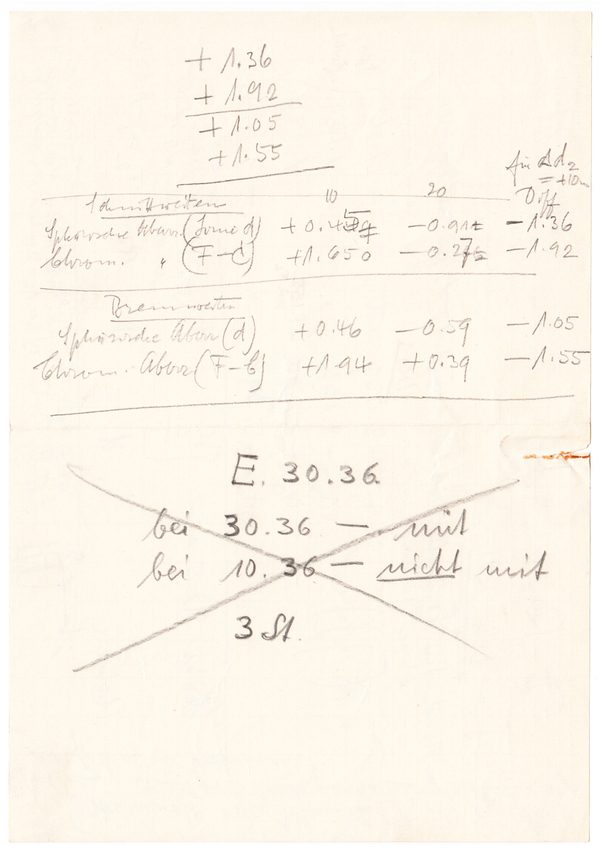 + 1.36
+ 1.92
+ 1.05
+ 1.55
für Δd2
= +10m
Schnittweiten 10 20 Diff
Sphärische Aberr. (Linie d) + 0.45 −0.91 −1.36
Chrom. " (F−C) +1.650 −0.27 −1.92
Brennweiten
Sphärische Aberr (d) +0.46 −0.59 −1.05
Chrom. Aberr (F−C) +1.94 +0.39 −1.55
E. 30.36
bei 30.36 — mit
bei 10.36 — nicht mit
3 St.